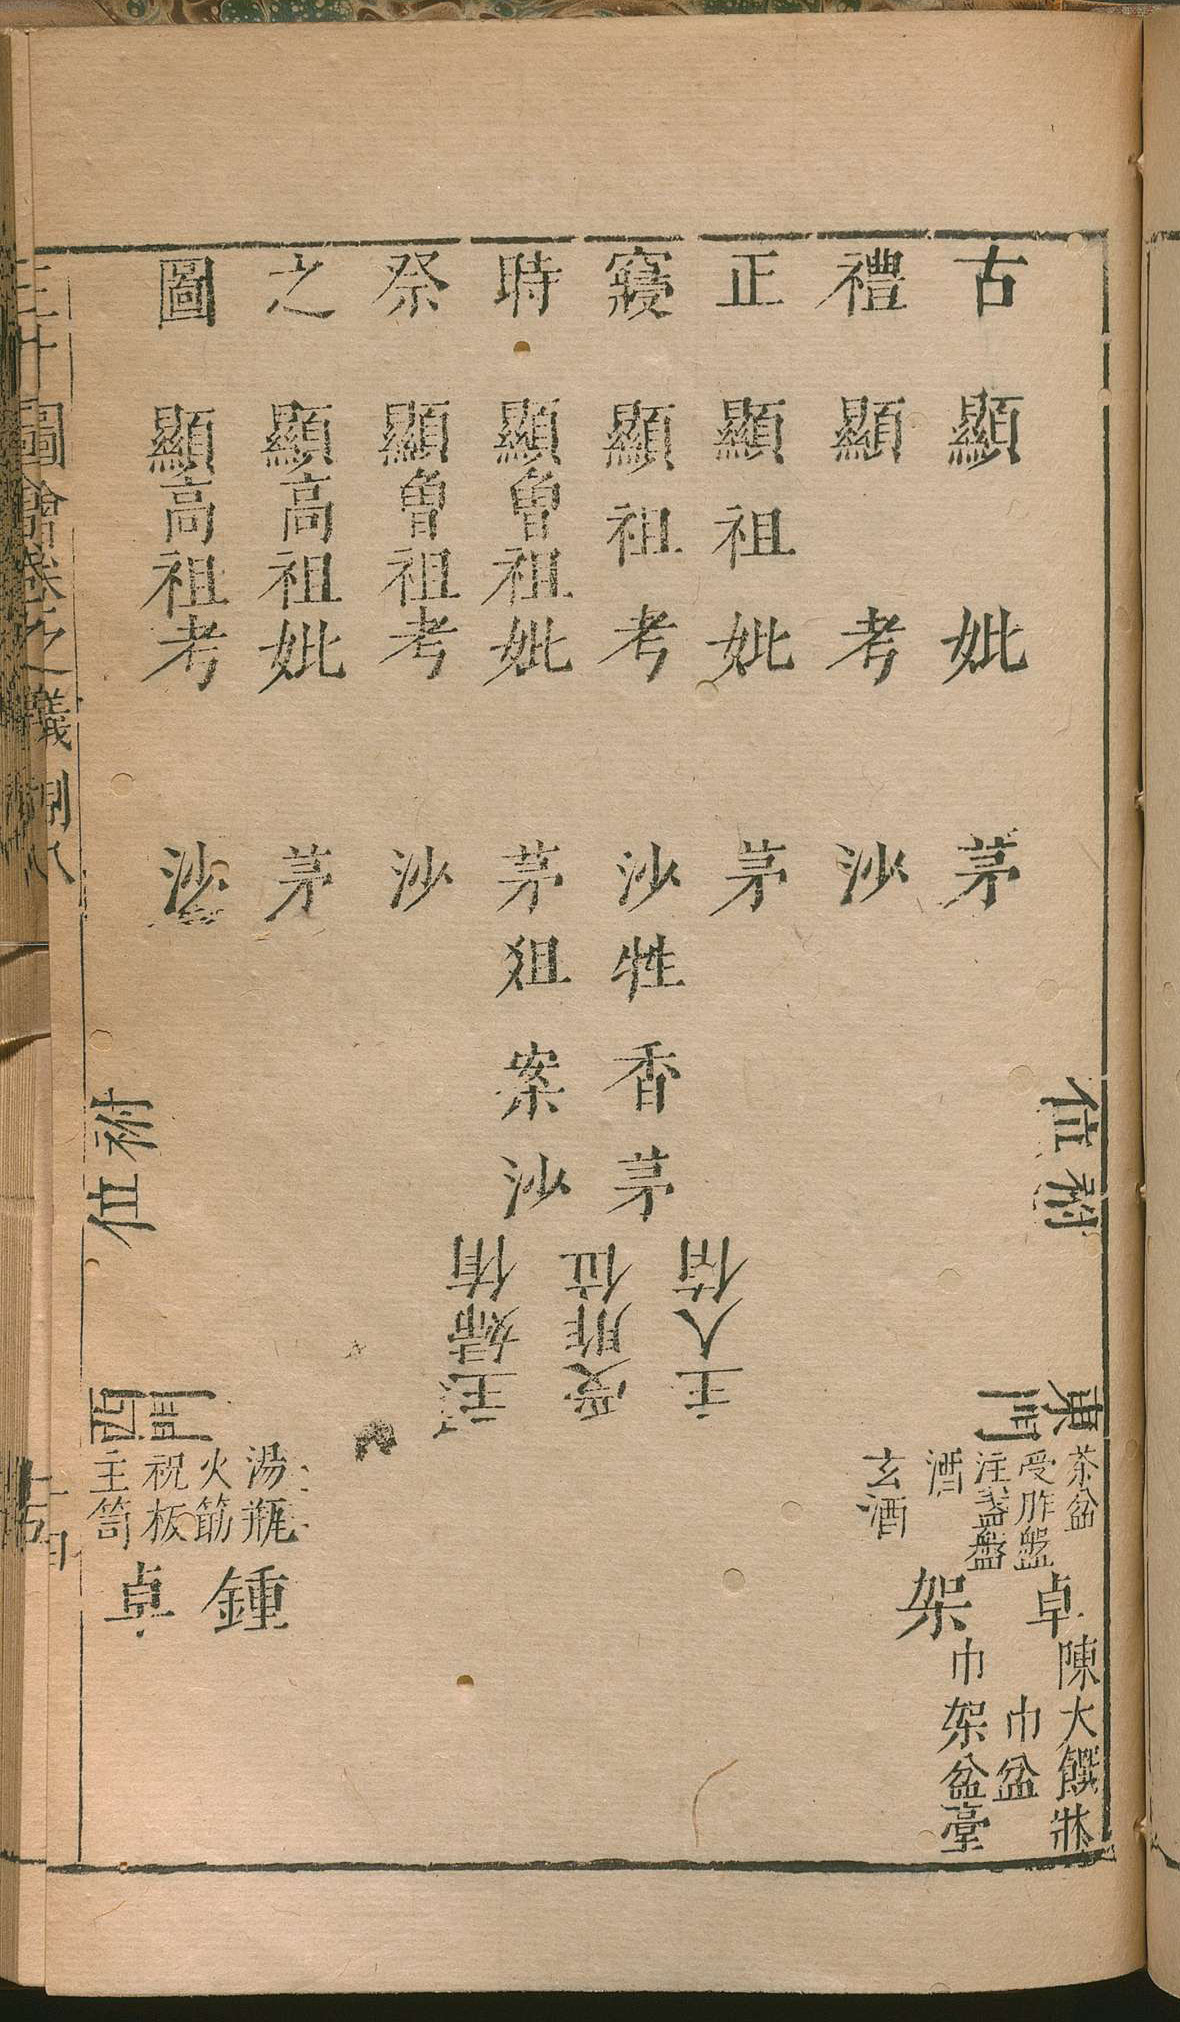 古禮正寢時祭之圖
顯妣
顯考
顯祖妣
顯祖考
顯曾祖妣
顯曾祖考
顯高祖妣
顯高祖考
茅沙
茅沙
茅沙
茅沙
牲俎
香案
茅沙
祔位
祔位
主人侑
受胙位
主婦侑
東
西
茶盆
受胙盤
注盞盤
酒
玄酒
卓
架
陳大饌牀
巾盆
巾架盆臺
湯瓶
火筯
祝板
主笥
鍾
卓
圖會卷之儀制八